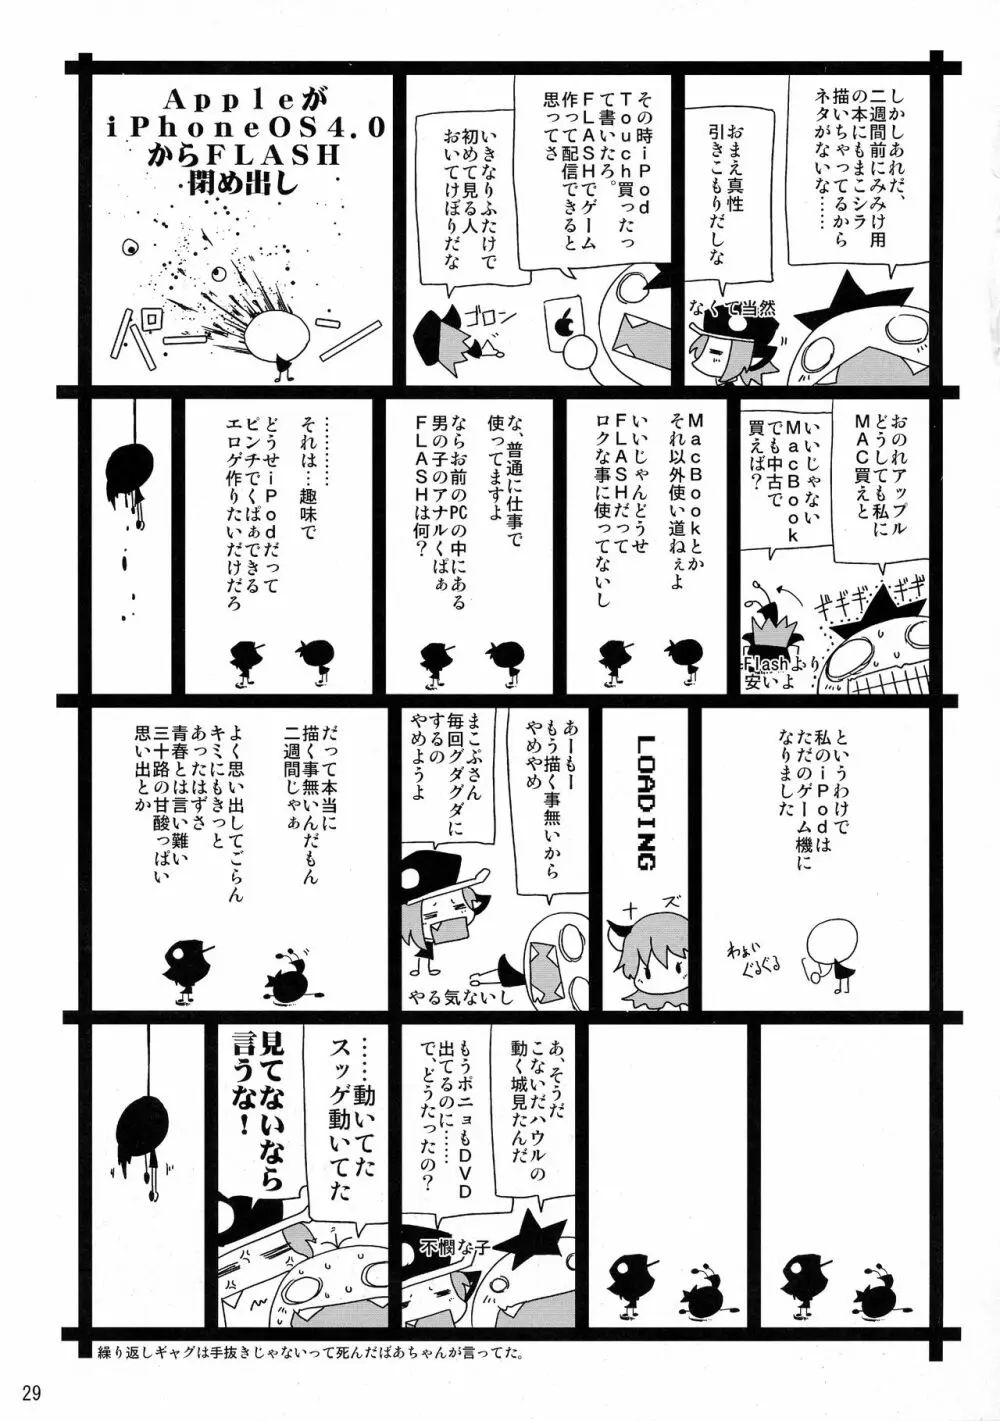 しかしあれだ、
二週間前にみみけ用
の本にもまこシラ
描いちゃってるから
ネタがないな……
おまえ真性
引きこもりだしな
なくて当然
その時iPod
Touch買ったっ
て書いたろ。
FLASHでゲーム
作って配信できると
思ってさ
いきなりふたけで
初めて見る人
おいてけぼりだな
ゴロン
Appleが
iPhoneOS4.0
からFLASH
閉め出し
パーン
おのれアップル
どうしても私に
MAC買えと
ギギギギギギ
いいじゃない
MacBook
でも中古で
買えば?
Flashより
安いよ
MacBookとか
それ以外使い道ねぇよ
いいじゃんどうせ
FLASHだって
ロクな事に使ってないし
な、普通に仕事で
使ってますよ
ならお前のPCの中にある
男の子のアナルくぱぁ
FLASHは何?
…………
それは…趣味で
どうせiPodだって
ピンチでくぱぁできる
エロゲ作りたいだけだろ
というわけで
私のiPodは
ただのゲーム機に
なりました
わぁい
ぐるぐる
LOADING
+ズ
あーもー
もう描く事無いから
やめやめ
まこぷさん
毎回グダグダに
するの
やめようよ
やる気ないし
だって本当に
描く事無いんだもん
二週間じゃぁ
よく思い出してごらん
キミにもきっと
あったはずさ
青春とは言い難い
三十路の甘酸っぱい
思い出とか
あ、そうだ
こないだハウルの
動く城見たんだ
もうポニョもDVD
出てるのに……
で、どうたったの?
不憫な子
……動いてた
スッゲ動いてた
見てないなら
言うな!
繰り返しギャグは手抜きじゃないって死んだばあちゃんが言ってた。
29